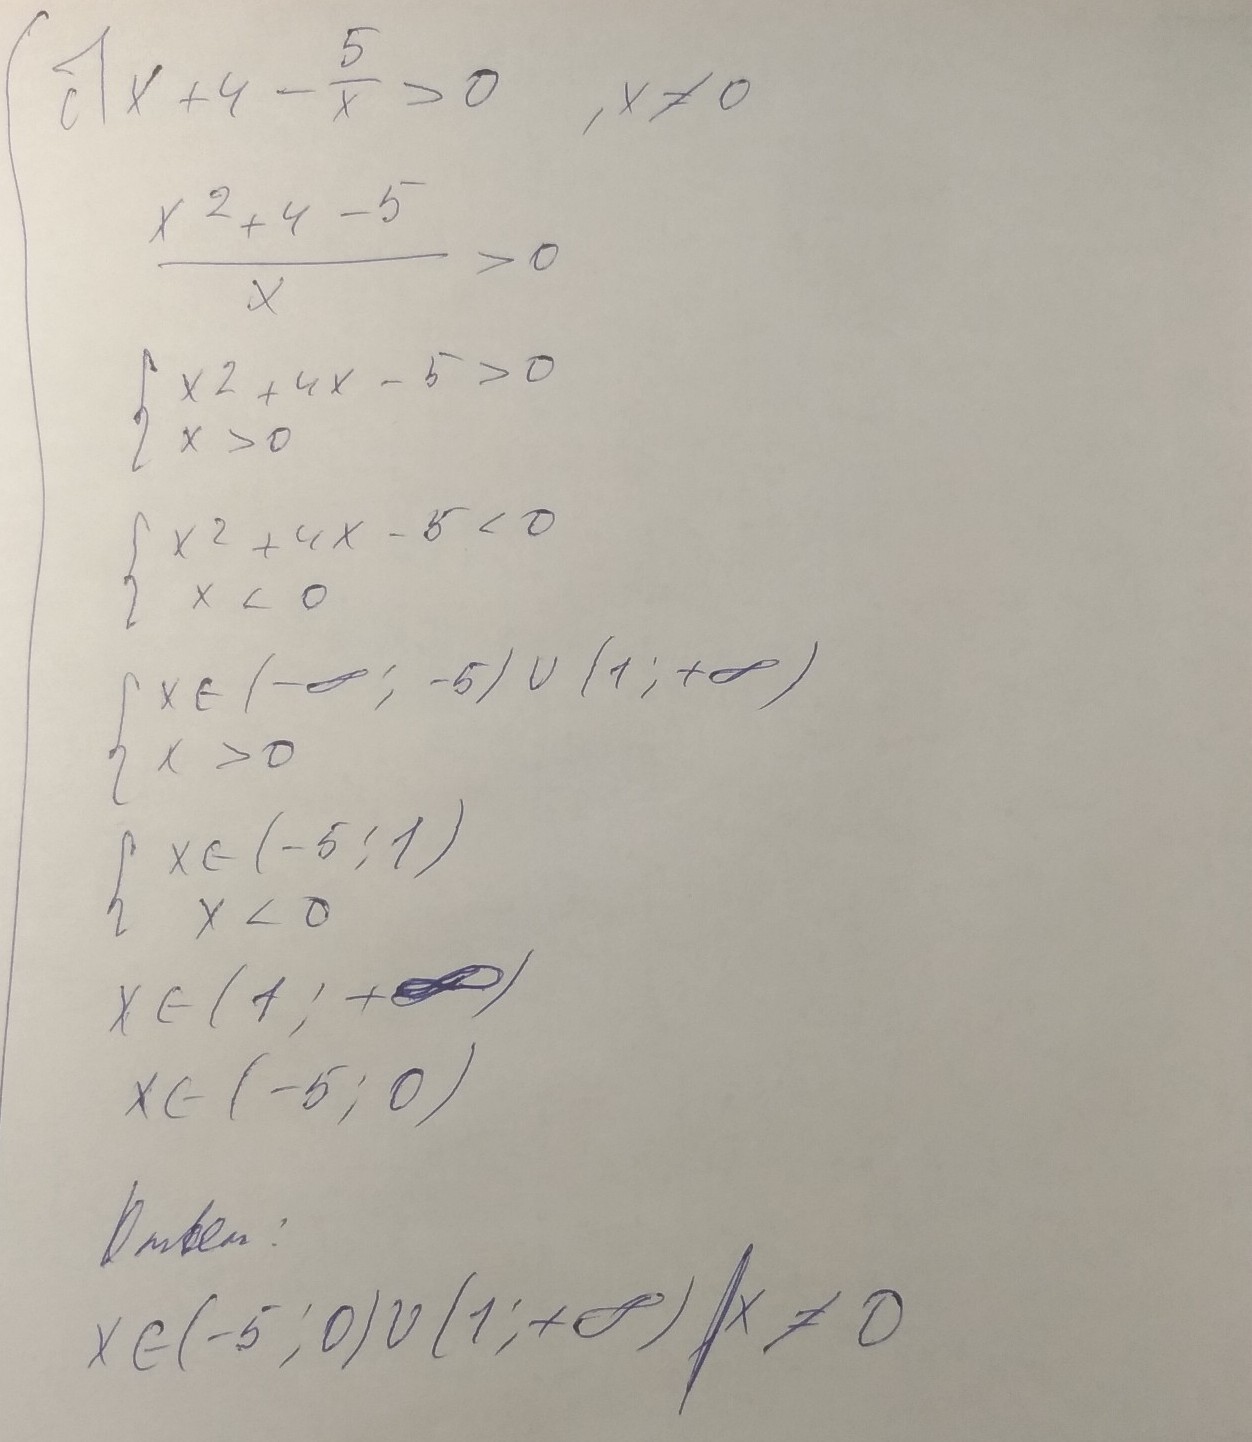 x + 4 - 5/x > 0 , x ≠ 0
x² + 4 - 5
x > 0
{ x² + 4x - 5 > 0
x > 0
{ x² + 4x - 5 < 0
x < 0
{ x ∈ (-∞; -5) ∪ (1; +∞)
x > 0
{ x ∈ (-5; 1)
x < 0
x ∈ (1; +∞)
x ∈ (-5; 0)
Ответ:
x ∈ (-5; 0) ∪ (1; +∞) / x ≠ 0